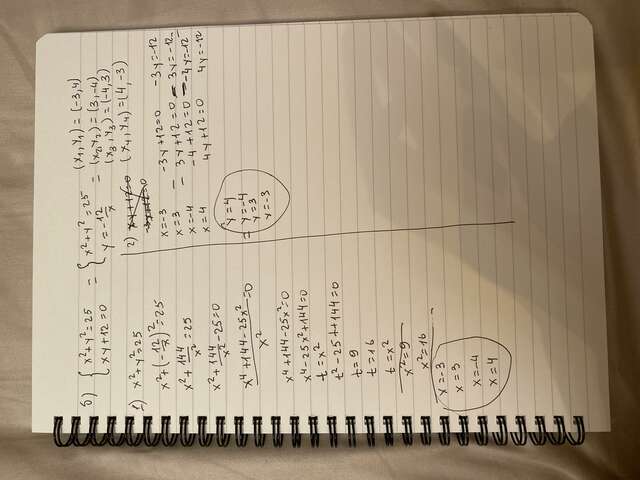 б) { x²+y²=25 = { x²+y²=25 (x₁,y₁)=(-3,4)
xy+12=0 y=-12/x = (x₂,y₂)=(3,-4)
= (x₃,y₃)=(-4,3)
(x₄,y₄)=(4,-3)
1) x²+y²=25
x²+(-12/x)²=25
x²+144/x²=25
x²+144/x²-25=0
x⁴+144-25x²/x²=0
x⁴+144-25x²=0
x⁴-25x²+144=0
t=x²
t²-25t+144=0
t=9
t=16
t=x²
x²=9
x²=16
x=-3
x=3
x=-4
x=4
2) xy+12=0
x=-3 -3y+12=0 -3y=-12
x=3 - 3y+12=0 - 3y=-12
x=-4 -4+12=0 -4y=-12
x=4 4y+12=0 4y=-12
= y=4
y=-4
y=3
y=-3